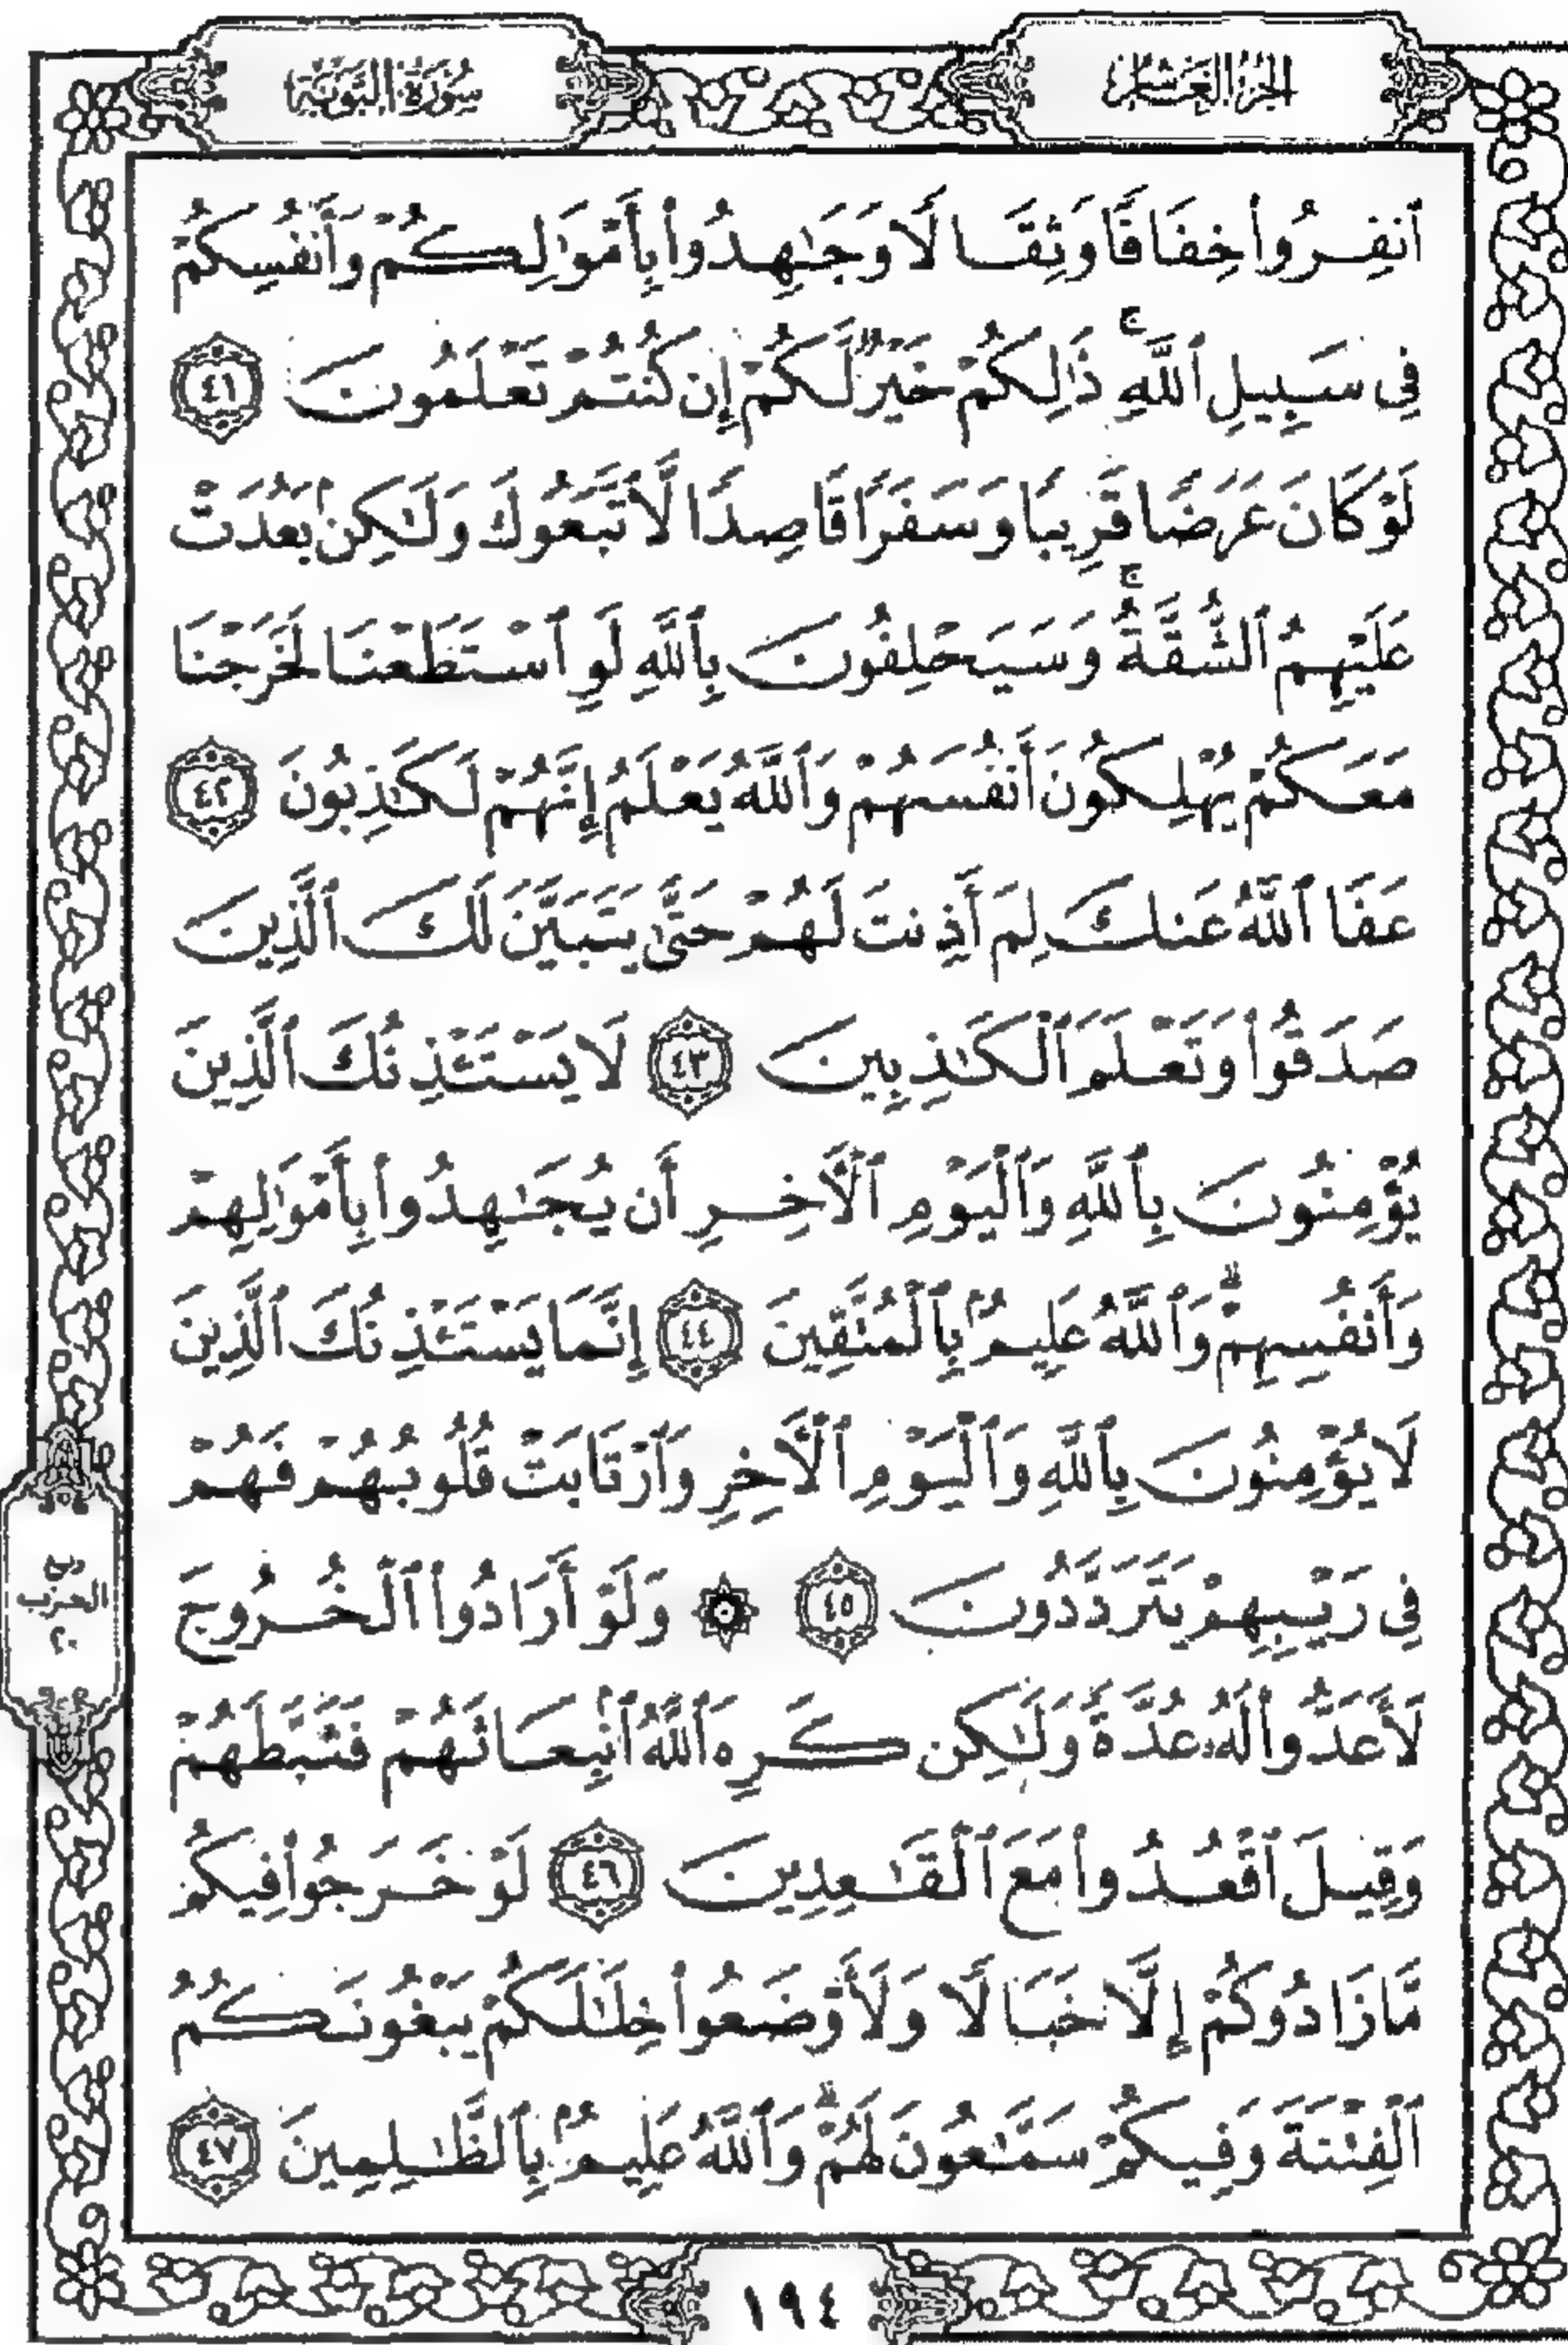 الجزء العاشر
سورة التوبة
ٱنفِرُواْ خِفَافًا وَثِقَالًا وَجَٰهِدُواْ بِأَمْوَٰلِكُمْ وَأَنفُسِكُمْ
فِي سَبِيلِ ٱللَّهِۚ ذَٰلِكُمْ خَيْرٌ لَّكُمْ إِن كُنتُمْ تَعْلَمُونَ ٤١
لَوْ كَانَ عَرَضًا قَرِيبًا وَسَفَرًا قَاصِدًا لَّٱتَّبَعُوكَ وَلَٰكِنۢ بَعُدَتْ
عَلَيْهِمُ ٱلشُّقَّةُۚ وَسَيَحْلِفُونَ بِٱللَّهِ لَوِ ٱسْتَطَعْنَا لَخَرَجْنَا
مَعَكُمْ يُهْلِكُونَ أَنفُسَهُمْ وَٱللَّهُ يَعْلَمُ إِنَّهُمْ لَكَٰذِبُونَ ٤٢
عَفَا ٱللَّهُ عَنكَ لِمَ أَذِنتَ لَهُمْ حَتَّىٰ يَتَبَيَّنَ لَكَ ٱلَّذِينَ
صَدَقُواْ وَتَعْلَمَ ٱلْكَٰذِبِينَ ٤٣ لَا يَسْتَـْٔذِنُكَ ٱلَّذِينَ
يُؤْمِنُونَ بِٱللَّهِ وَٱلْيَوْمِ ٱلْأَخِرِ أَن يُجَٰهِدُواْ بِأَمْوَٰلِهِمْ
وَأَنفُسِهِمْۗ وَٱللَّهُ عَلِيمٌۢ بِٱلْمُتَّقِينَ ٤٤ إِنَّمَا يَسْتَـْٔذِنُكَ ٱلَّذِينَ
لَا يُؤْمِنُونَ بِٱللَّهِ وَٱلْيَوْمِ ٱلْأَخِرِ وَٱرْتَابَتْ قُلُوبُهُمْ فَهُمْ
فِي رَيْبِهِمْ يَتَرَدَّدُونَ ٤٥ ۞ وَلَوْ أَرَادُواْ ٱلْخُرُوجَ
ربع
الحزب
٢٠
لَأَعَدُّواْ لَهُۥ عُدَّةً وَلَٰكِن كَرِهَ ٱللَّهُ ٱنۢبِعَاثَهُمْ فَثَبَّطَهُمْ
وَقِيلَ ٱقْعُدُواْ مَعَ ٱلْقَٰعِدِينَ ٤٦ لَوْ خَرَجُواْ فِيكُم
مَّا زَادُوكُمْ إِلَّا خَبَالًا وَلَأَوْضَعُواْ خِلَٰلَكُمْ يَبْغُونَكُمُ
ٱلْفِتْنَةَ وَفِيكُمْ سَمَّٰعُونَ لَهُمْۗ وَٱللَّهُ عَلِيمٌۢ بِٱلظَّٰلِمِينَ ٤٧
١٩٤